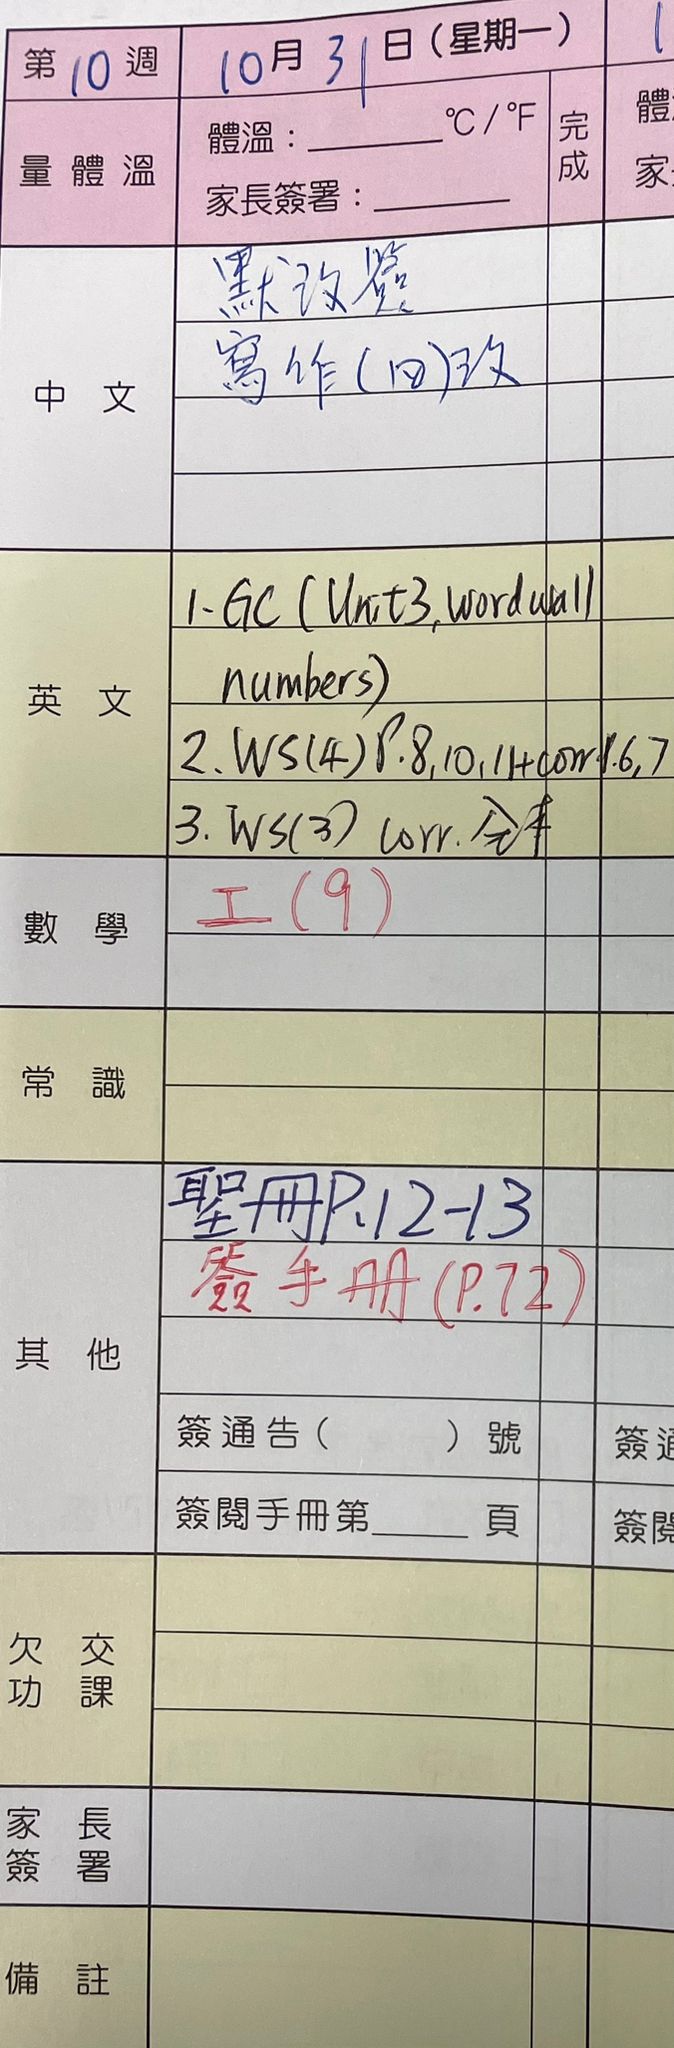 第10週 10月31日(星期一) 1
量體溫 體溫：______℃/℉ 完成 體
家長簽署：______ 家
中文 默改簽
寫作(四)改
英文 1. GC (Unit3, word wall
numbers)
2. WS(4) P.8,10,11+corr P.6,7
3. WS(3) corr. 全本
數學 工(9)
常識
其他 聖冊P.12-13
簽手冊(P.72)
簽通告( )號 簽通
簽閱手冊第______頁 簽閱
欠交
功課
家長
簽署
備註